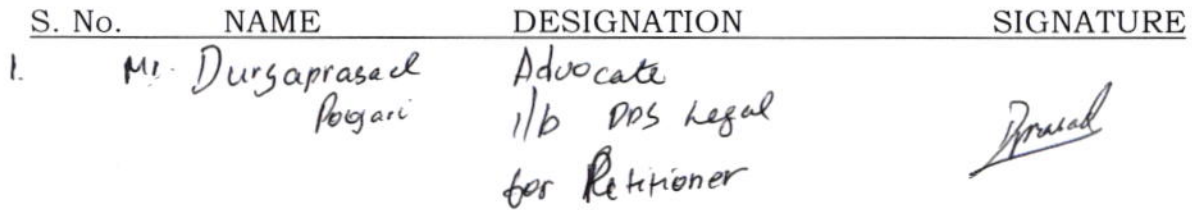 S. No. NAME DESIGNATION SIGNATURE
1. Mr. Durgaprasad Advocate
Poojari i/b DDS Legal
for Petitioner
Dprasad